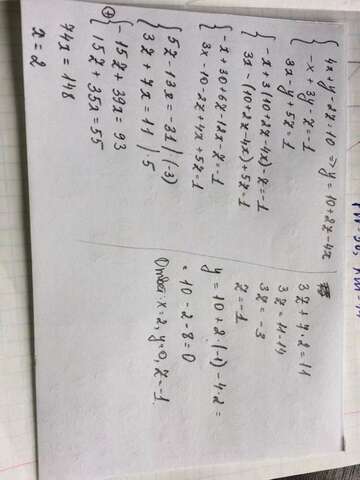 4x+y-2z=10 ⇒ y=10+2z-4x
-x+3y-z=-1
3x-y+5z=1
-x+3(10+2z-4x)-z=-1
3x-(10+2z-4x)+5z=1
-x+30+6z-12x-z=-1
3x-10-2z+4x+5z=1
5z-13x=-31 |·(-3)
3z+7x=11 |·5
-15z+39x=93
15z+35x=55
74x=148
x=2
3z+7·2=11
3z=11-14
3z=-3
z=-1
y=10+2·(-1)-4·2=
=10-2-8=0
Ответ: x=2, y=0, z=-1.